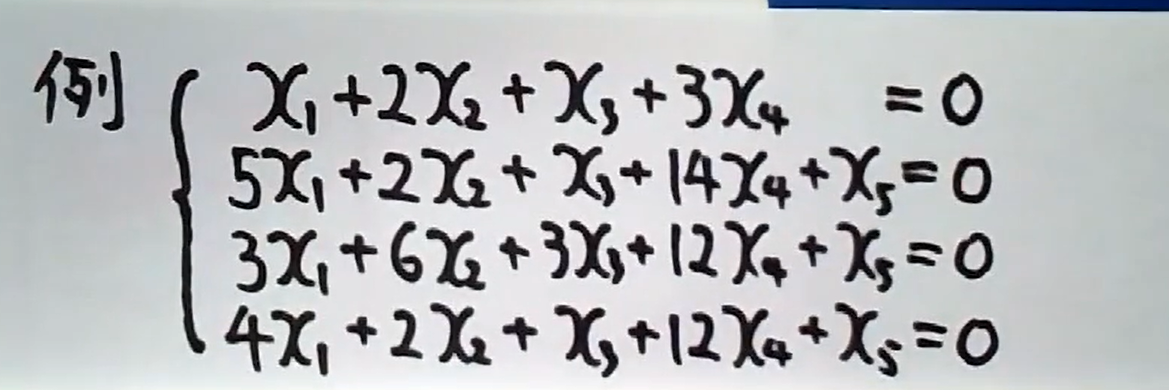 例 x₁+2x₂+x₃+3x₄ =0
5x₁+2x₂+x₃+14x₄+x₅=0
3x₁+6x₂+3x₃+12x₄+x₅=0
4x₁+2x₂+x₃+12x₄+x₅=0